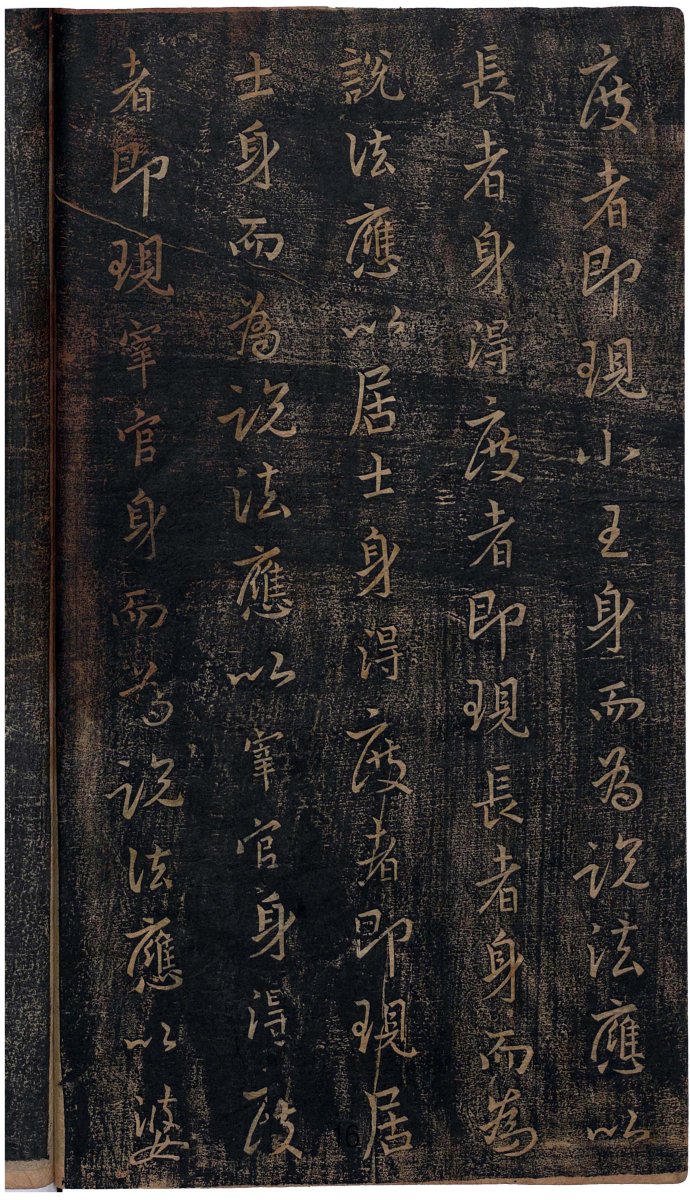 度者即現小王身而為説法應以
長者身得度者即現長者身而為
說法應以居士身得度者即現居
士身而為説法應以宰官身得度
者即現宰官身而為説法應以婆
16